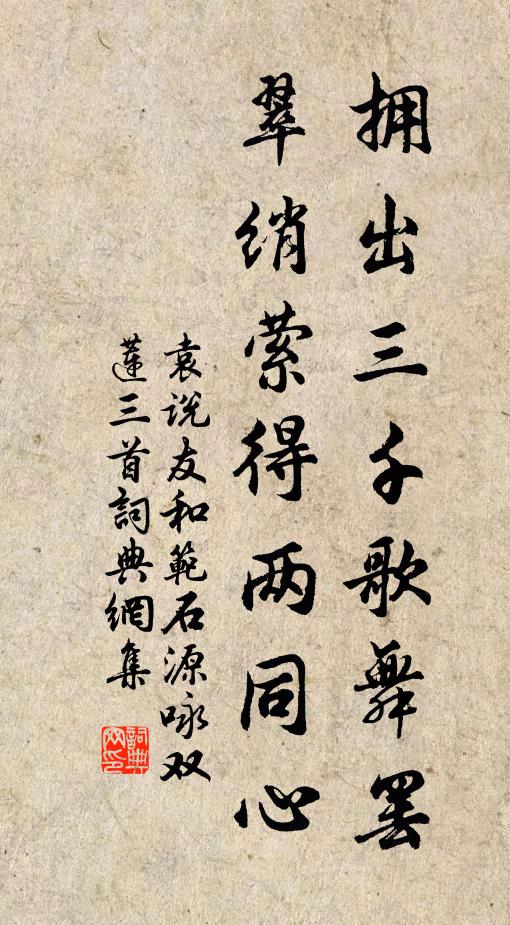 拥出三千歌舞罢
翠绡萦得两同心
袁说友和範石源咏双
蓮三首詞典網集
詞典网印